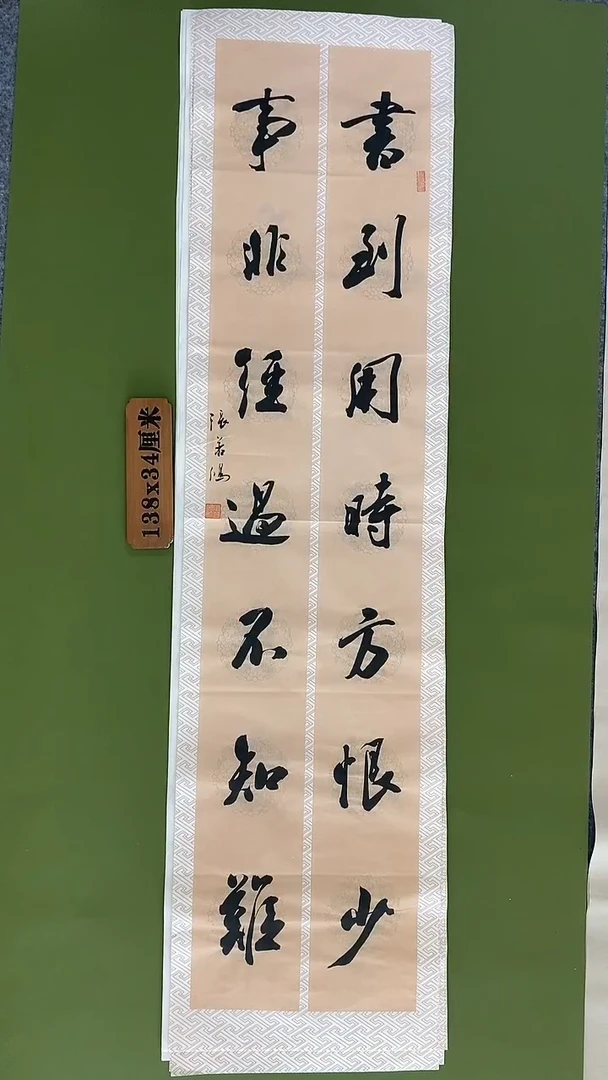 書到用時方恨少
事非經過不知難
張若鴻
138x34厘米